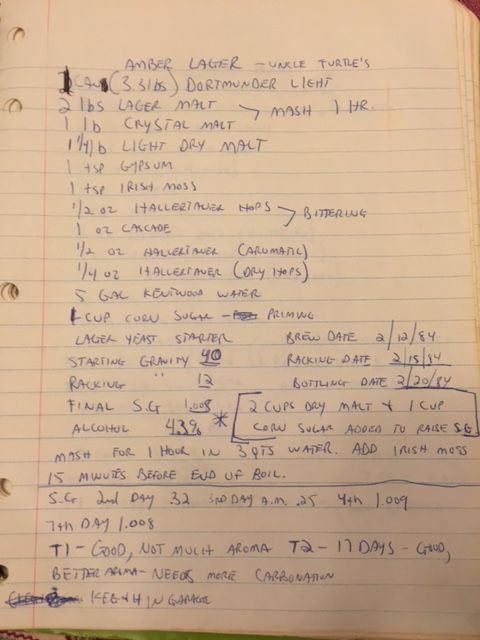 AMBER LAGER - UNCLE TURTLE'S
1 CAN (3.3 lbs) DORTMUNDER LIGHT
2 lbs LAGER MALT > MASH 1 HR.
1 lb CRYSTAL MALT
1 1/4 lb LIGHT DRY MALT
1 tsp GYPSUM
1 tsp IRISH MOSS
1/2 oz HALLERTAUER HOPS > BITTERING
1 oz CASCADE
1/2 oz HALLERTAUER (AROMATIC)
1/4 oz HALLERTAUER (DRY HOPS)
5 GAL KENTWOOD WATER
1 CUP CORN SUGAR - PRIMING
LAGER YEAST STARTER BREW DATE 2/12/84
STARTING GRAVITY 40 RACKING DATE 2/15/84
RACKING " 12 BOTTLING DATE 2/20/84
FINAL S.G 1.008 * 2 CUPS DRY MALT + 1 CUP
ALCOHOL 4.3% CORN SUGAR ADDED TO RAISE S.G
MASH FOR 1 HOUR IN 3 QTS WATER. ADD IRISH MOSS
15 MINUTES BEFORE END OF BOIL.
S.G. 2nd DAY 32 3RD DAY A.M. .25 4th 1.009
7th DAY 1.008
T1 - GOOD, NOT MUCH AROMA T2 - 17 DAYS - GOOD,
BETTER AROMA - NEEDS MORE CARBONATION
KEG IN GARAGE